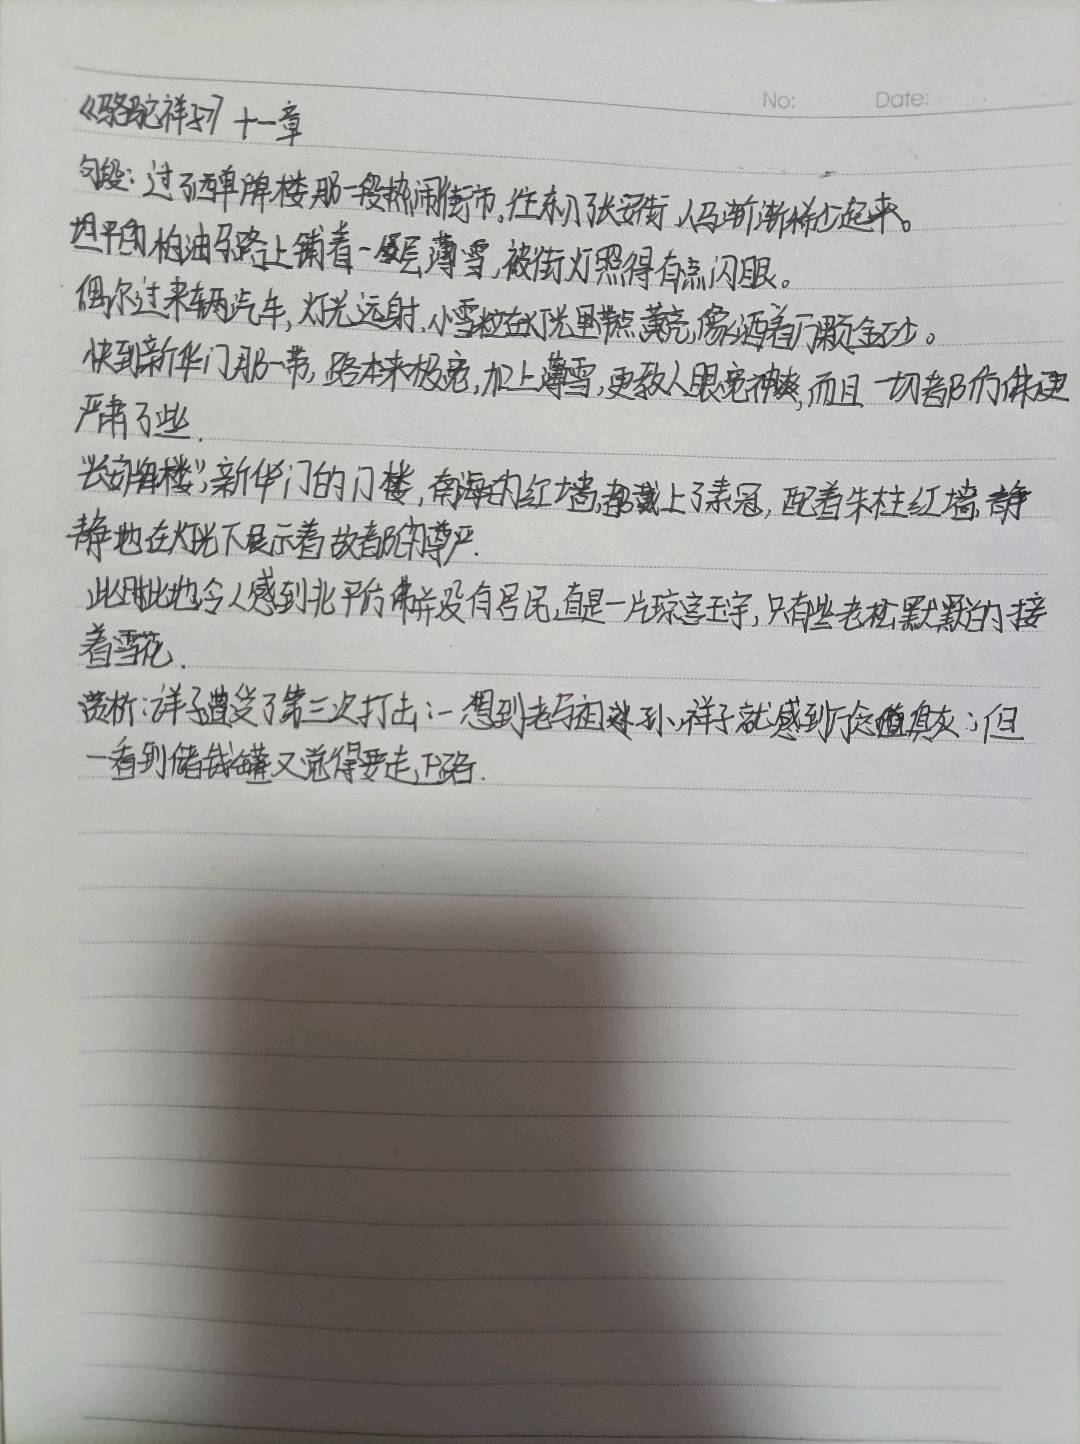 No: Date:
《骆驼祥子》十一章
句段：过了西单牌楼那一段热闹街市,往东入了长安街,人马渐渐稀少起来。
坦平的柏油马路上铺着一层薄雪,被街灯照得有点闪眼。
偶尔过来辆汽车,灯光远射,小雪粒在灯光里带点黄亮,像洒着万颗金砂。
快到新华门那一带,路本来极宽,加上薄雪,更教人眼宽神爽,而且一切都仿佛更
严肃了些.
“长安牌楼”,新华门的门楼,南海的红墙,都戴上了素冠,配着朱柱红墙,静
静地在灯光下展示着故都的尊严.
此时此地令人感到北平仿佛并没有居民,直是一片琼宫玉宇,只有些老松默默的接
着雪花.
赏析:祥子遭受了第三次打击:一想到老马祖孙,祥子就感到万念俱灰;但
一看到储钱罐又觉得要走正路.